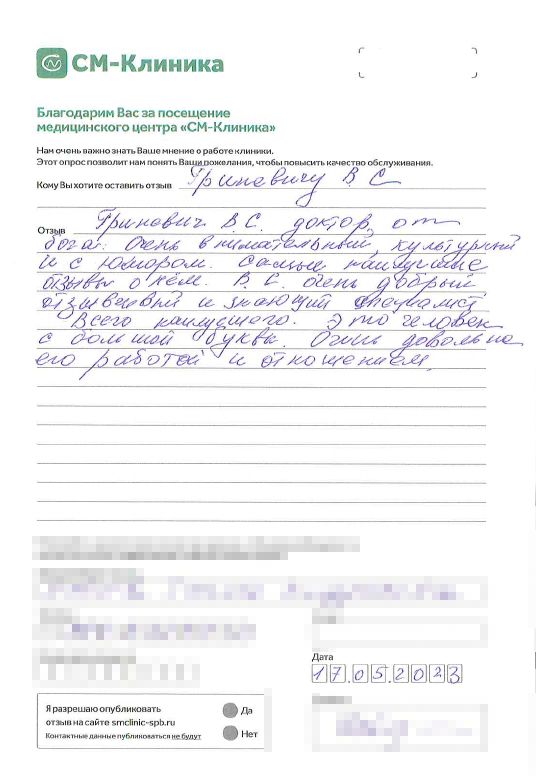 СМ-Клиника
Благодарим Вас за посещение
медицинского центра «СМ-Клиника»
Нам очень важно знать Ваше мнение о работе клиники.
Этот опрос позволит нам понять Ваши пожелания, чтобы повысить качество обслуживания.
Кому Вы хотите оставить отзыв Гриневичу В С
Отзыв Гриневич В.С. доктор, от
бога. Очень внимательный, культурный
и с юмором. Самые наилучшие
отзывы о нём. В.С. очень добрый
отзывчивый и знающий специалист
Всего наилучшего. Это человек
с большой буквы. Очень довольна
его работой и отношением.
Дата
17.05.2023
Я разрешаю опубликовать
отзыв на сайте smclinic-spb.ru
Контактные данные публиковаться не будут
Да
Нет